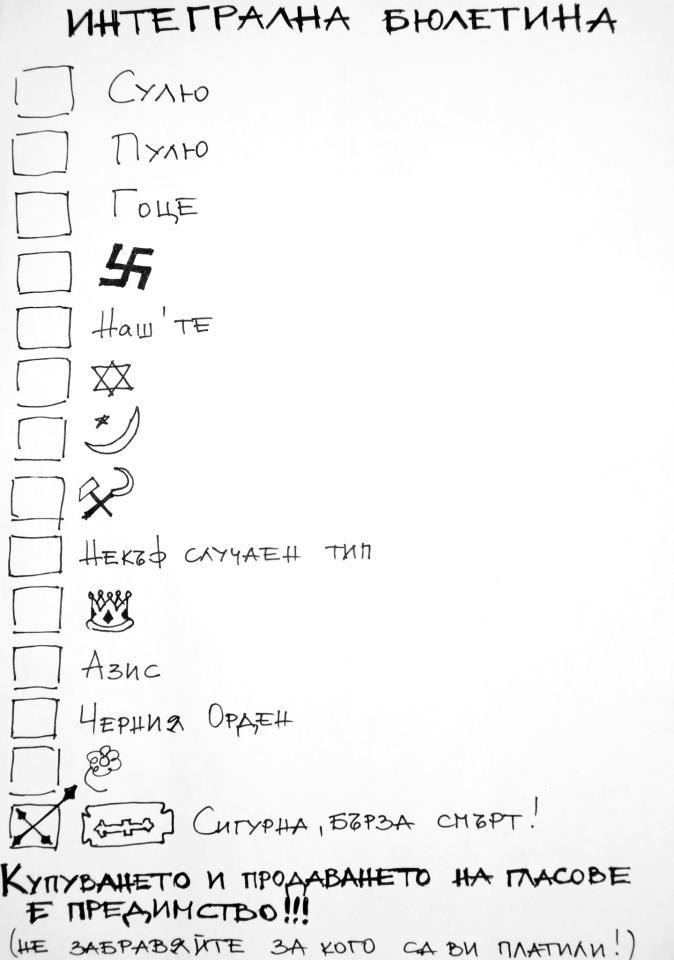 ИНТЕГРАЛНА БЮЛЕТИНА
Сулю
Пулю
Гоце
Наш'те
Некъф случаен тип
Азис
Черния Орден
Сигурна, бърза смърт!
Купуването и продаването на гласове
е предимство!!!
(не забравяйте за кого са ви платили!)